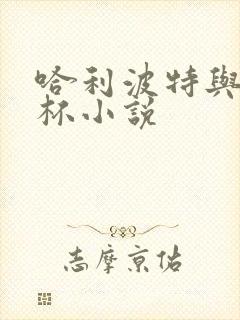 哈利波特與
杯小說
志摩京佑